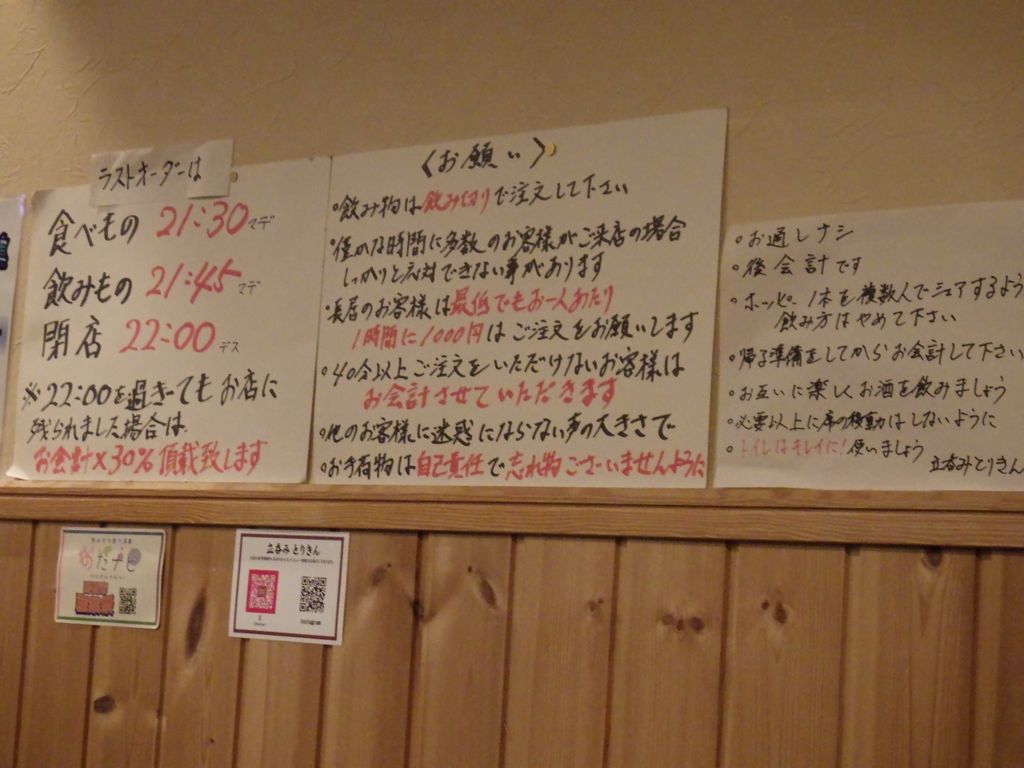 ラストオーダーは
食べもの 21:30マデ
飲みもの 21:45マデ
閉店 22:00デス
※22:00を過ぎてもお店に
残られました場合は
お会計×30%頂戴致します
〈お願い〉
・飲み物は飲み切りで注文して下さい
・僅かな時間に多数のお客様がご来店の場合
しっかりと応対できない事があります
・長居のお客様は最低でもお一人あたり
1時間に1000円はご注文をお願いします
・40分以上ご注文をいただけないお客様は
お会計させていただきます
・他のお客様に迷惑にならない声の大きさで
・お手荷物は自己責任で忘れ物ございませんように
・お通しナシ
・後会計です
・ホッピー1本を複数人でシェアするような
飲み方はやめて下さい
・帰る準備をしてからお会計して下さい
・お互いに楽しくお酒を飲みましょう
・必要以上に席の移動はしないように
・トイレはキレイに!使いましょう
立呑みとりきん
立呑み とりきん
X
Instagram